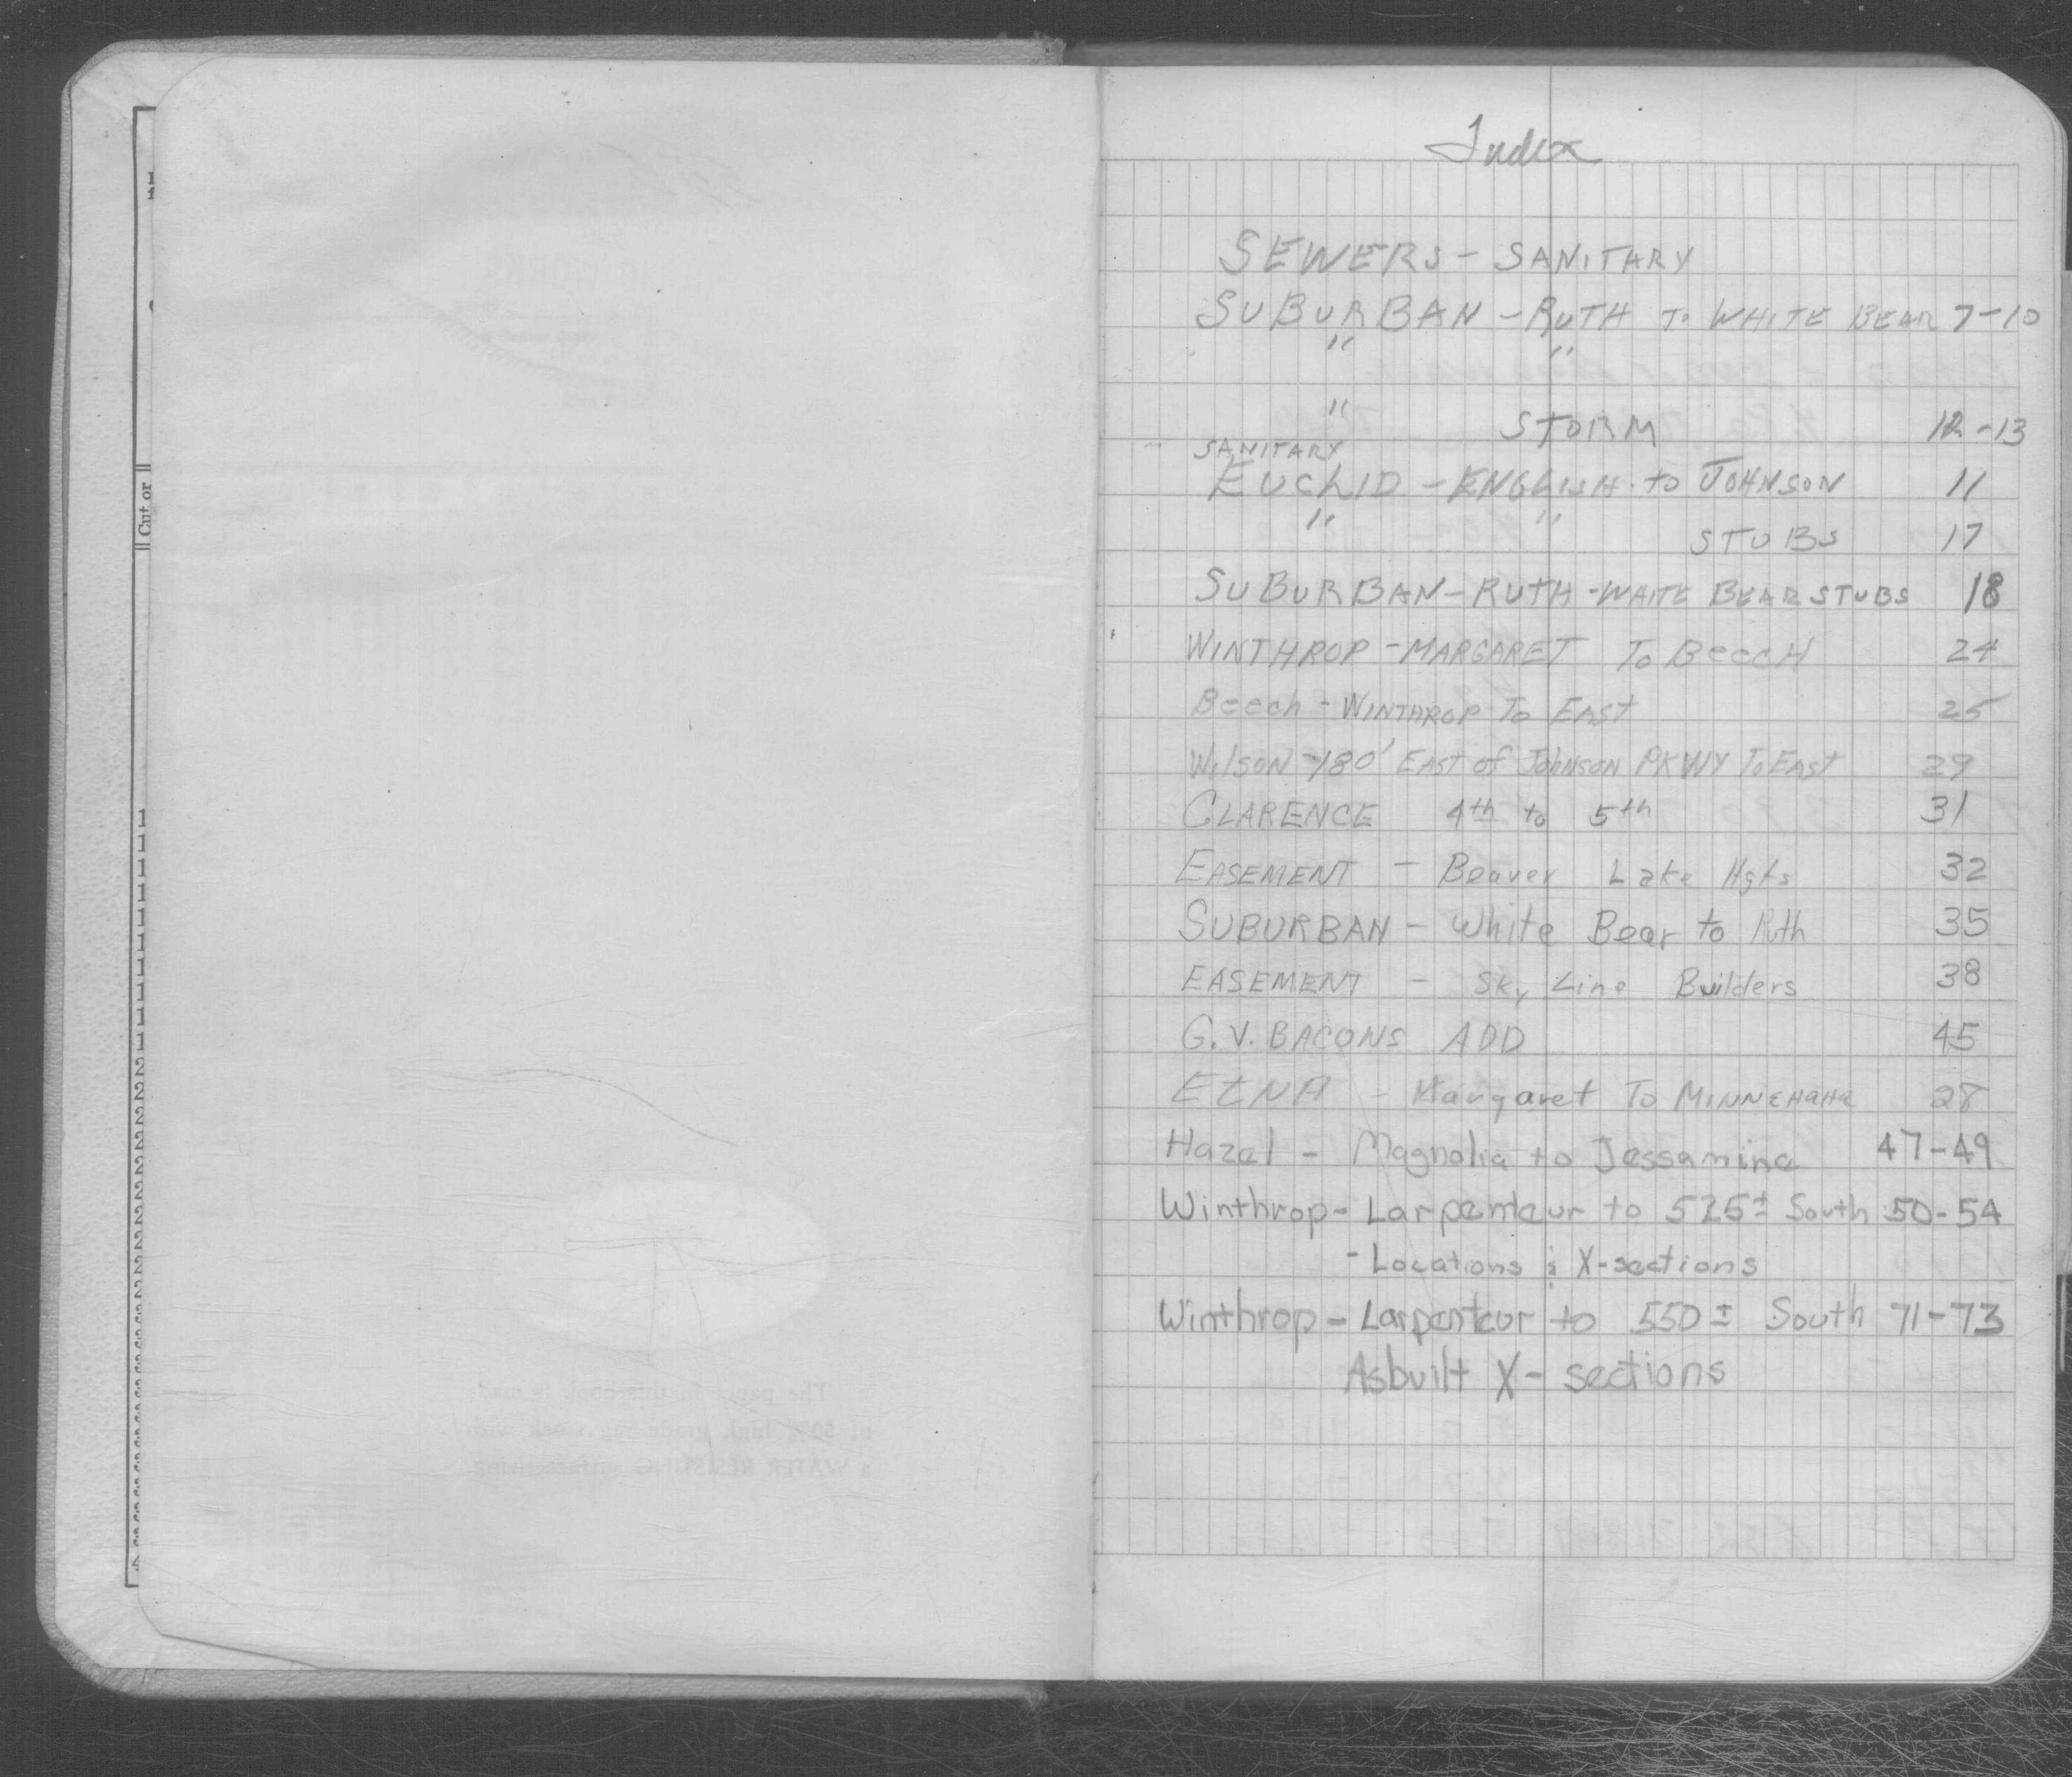 Index
SEWERS - SANITARY
SUBURBAN - RUTH TO WHITE BEAR 7-10
" "
" STORM 12-13
SANITARY
EUCLID - ENGLISH to JOHNSON 11
" " STUBS 17
SUBURBAN - RUTH - WHITE BEAR STUBS 18
WINTHROP - MARGARET To BeecH 24
Beech - WINTHROP To EAST 25
WilSON - 180' EAST of JOhNSON PKWY To EAST 29
CLARENCE 4th to 5th 31
EASEMENT - Beaver Lake Hgts 32
SUBURBAN - White Bear to Ruth 35
EASEMENT - Sky Line Builders 38
G.V. BACONS ADD 45
EtNA - Margaret To MINNEHaHa 28
Hazel - Magnolia to Jessamine 47-49
Winthrop - Larpenteur to 525± South 50-54
- Locations & X-sections
Winthrop - Larpenteur to 550± South 71-73
Asbuilt X-sections
Cut or